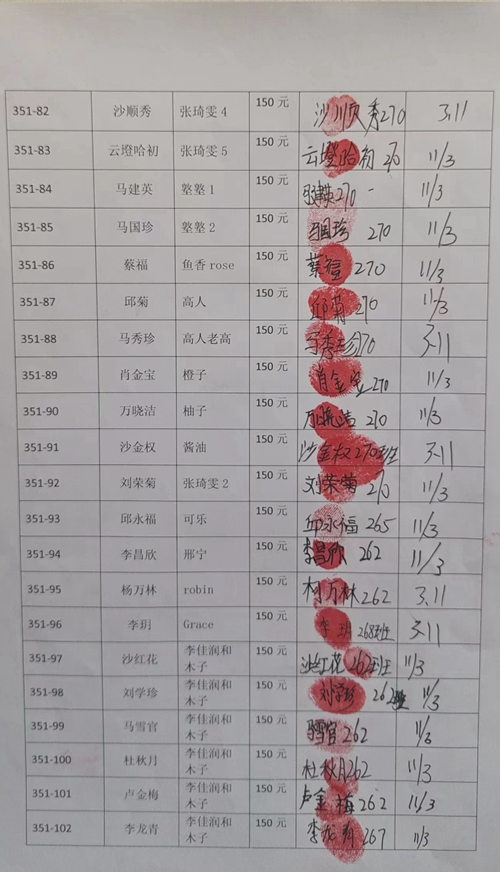 351-82 沙顺秀 张琦雯 4 150 元 沙顺秀270 3.11
351-83 云墱哈初 张琦雯 5 150 元 云墱哈初 270 11/3
351-84 马建英 婺婺 1 150 元 马建英270 11/3
351-85 马国珍 婺婺 2 150 元 马国珍 270 11/3
351-86 蔡福 鱼香 rose 150 元 蔡福 270 11/3
351-87 邱菊 高人 150 元 邱菊 270 11/3
351-88 马秀珍 高人老高 150 元 马秀珍270 3.11
351-89 肖金宝 橙子 150 元 肖金宝 270 11/3
351-90 万晓洁 柚子 150 元 270 11/3
351-91 沙金权 酱油 150 元 沙金权270班 3-11
351-92 刘荣菊 张琦雯 2 150 元 刘荣菊 270 11/3
351-93 邱永福 可乐 150 元 邱永福 265 11/3
351-94 李昌欣 邢宁 150 元 李昌欣 262 11/3
351-95 杨万林 robin 150 元 杨万林 262 3.11
351-96 李玥 Grace 150 元 李玥 268班 3-11
351-97 沙红花 李佳润和 150 元 沙红花 262班 11/3
木子
351-98 刘学珍 李佳润和 150 元 刘学珍 262班 11/3
木子
351-99 马雪官 李佳润和 150 元 马雪官 262 11/3
木子
351-100 杜秋月 李佳润和 150 元 杜秋月262 11/3
木子
351-101 卢金梅 李佳润和 150 元 卢金梅 262 11/3
木子
351-102 李龙青 李佳润和 150 元 李龙青 267 11/3
木子